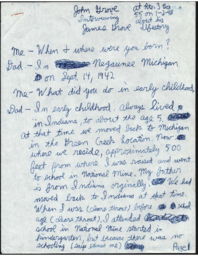 John Grove
Interviewing
James Grove
at the
55 on 1-2-
about his
history
Me - When & where were you born?
Dad - In Negaunee Michigan
on Sept 14, 1942
Me - What did you do in early childhood
Dad - In early childhood, always lived
in Indiana, to about the age 5,
at that time we moved back to Michigan
in the Green Creek Location. Now
where we reside, approximately 500
feet from where I was raised and went
to school in National Mine. My father
is from Indiana originally. We had
moved back to Indiana at that time
When I was (clears throat) before
age (clears throat), I attended
school in National Mine started in
kindergarten, but because there was no
schooling
Page 1